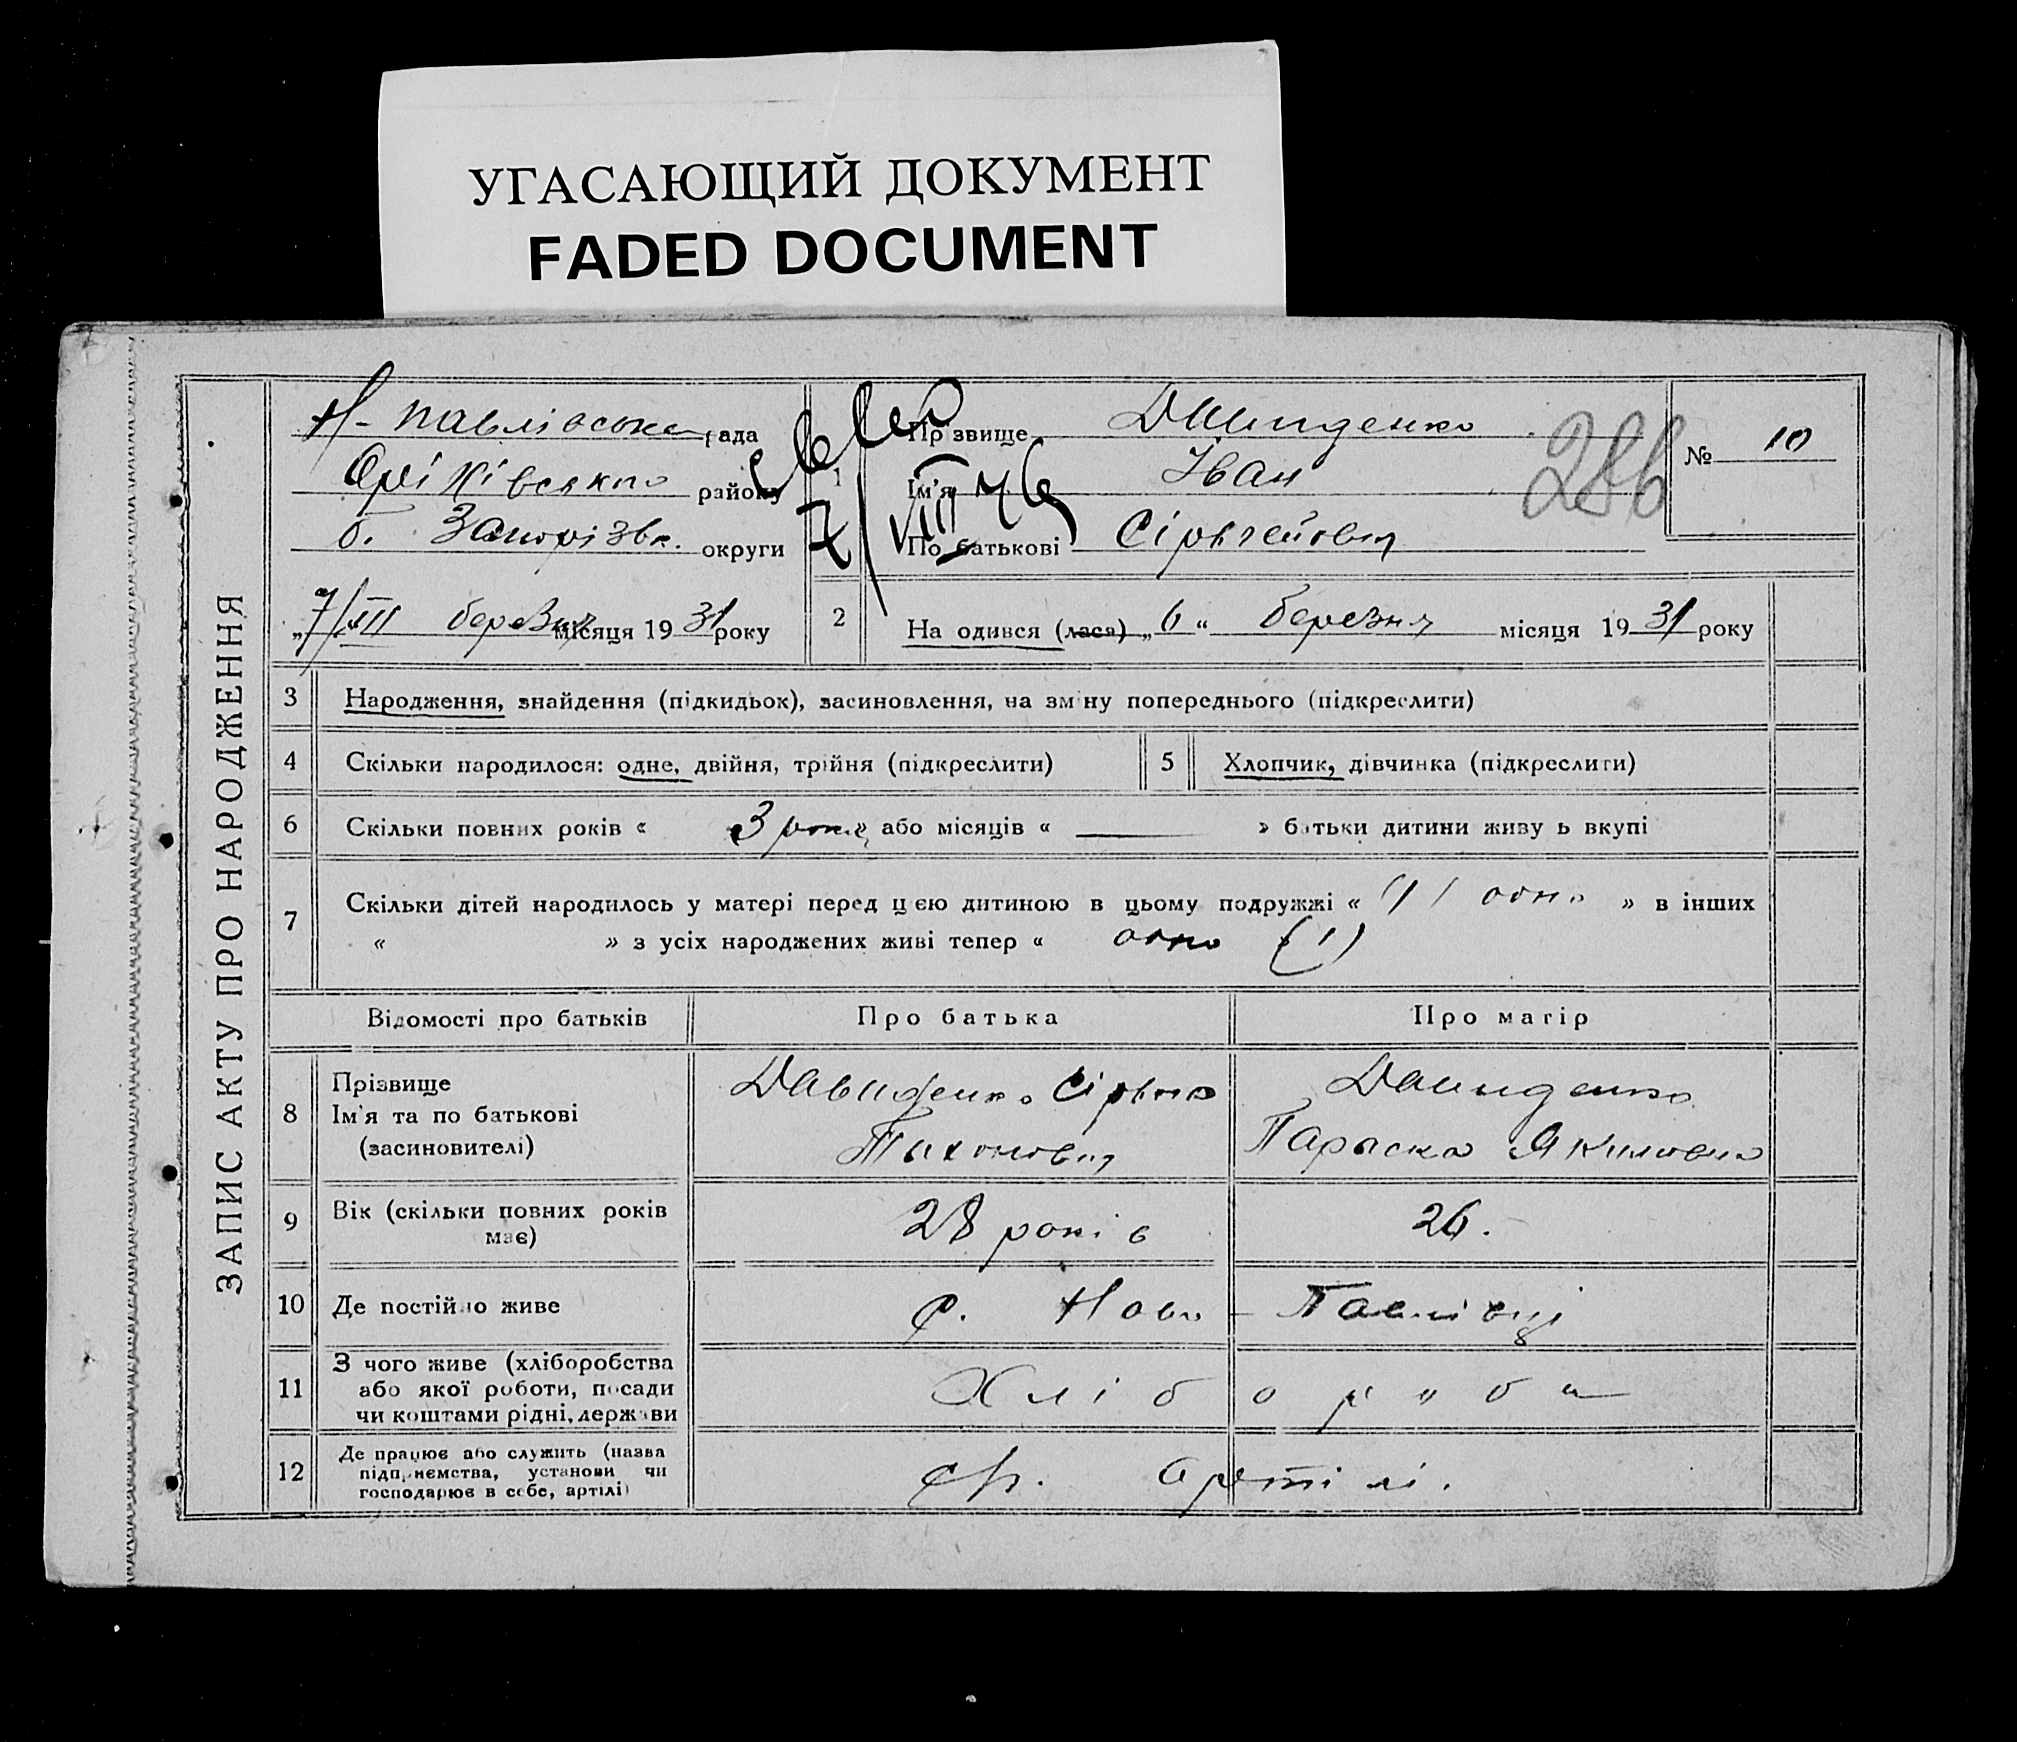 УГАСАЮЩИЙ ДОКУМЕНТ
FADED DOCUMENT
ЗАПИС АКТУ ПРО НАРОДЖЕННЯ
Н-Павлівська рада
Оріхівського району
б. Запорізьк. округи
„7/III березня місяця 1931 року
1
Прізвище Давиденко
Ім'я Іван
По батькові Сірьгейович
№ 10
286
7/VIII 46
2
На одився (лася) „6“ березня місяця 1931 року
3 Народження, знайдення (підкидьок), засиновлення, на зміну попереднього (підкреслити)
4 Скільки народилося: одне, двійня, трійня (підкреслити)
5 Хлопчик, дівчинка (підкреслити)
6 Скільки повних років « 3 роки » або місяців « — » батьки дитини живу ь вкупі
7 Скільки дітей народилось у матері перед цією дитиною в цьому подружжі « (1) одно » в інших
« » з усіх народжених живі тепер « одно (1)
Відомості про батьків Про батька Про матір
8 Прізвище
Ім'я та по батькові
(засиновителі)
Давиденко Сірьгій
Тыхонович
Давиденко
Парыска Якимовна
9 Вік (скільки повних років
має)
28 років 26.
10 Де постійно живе с. Ново-Павлівці
11 З чого живе (хліборобства
або якої роботи, посади
чи коштами рідні, держави
Хлібороби
12 Де працює або служить (назва
підприємства, установи чи
господарює в себе, артілі)
ср. Артілі.